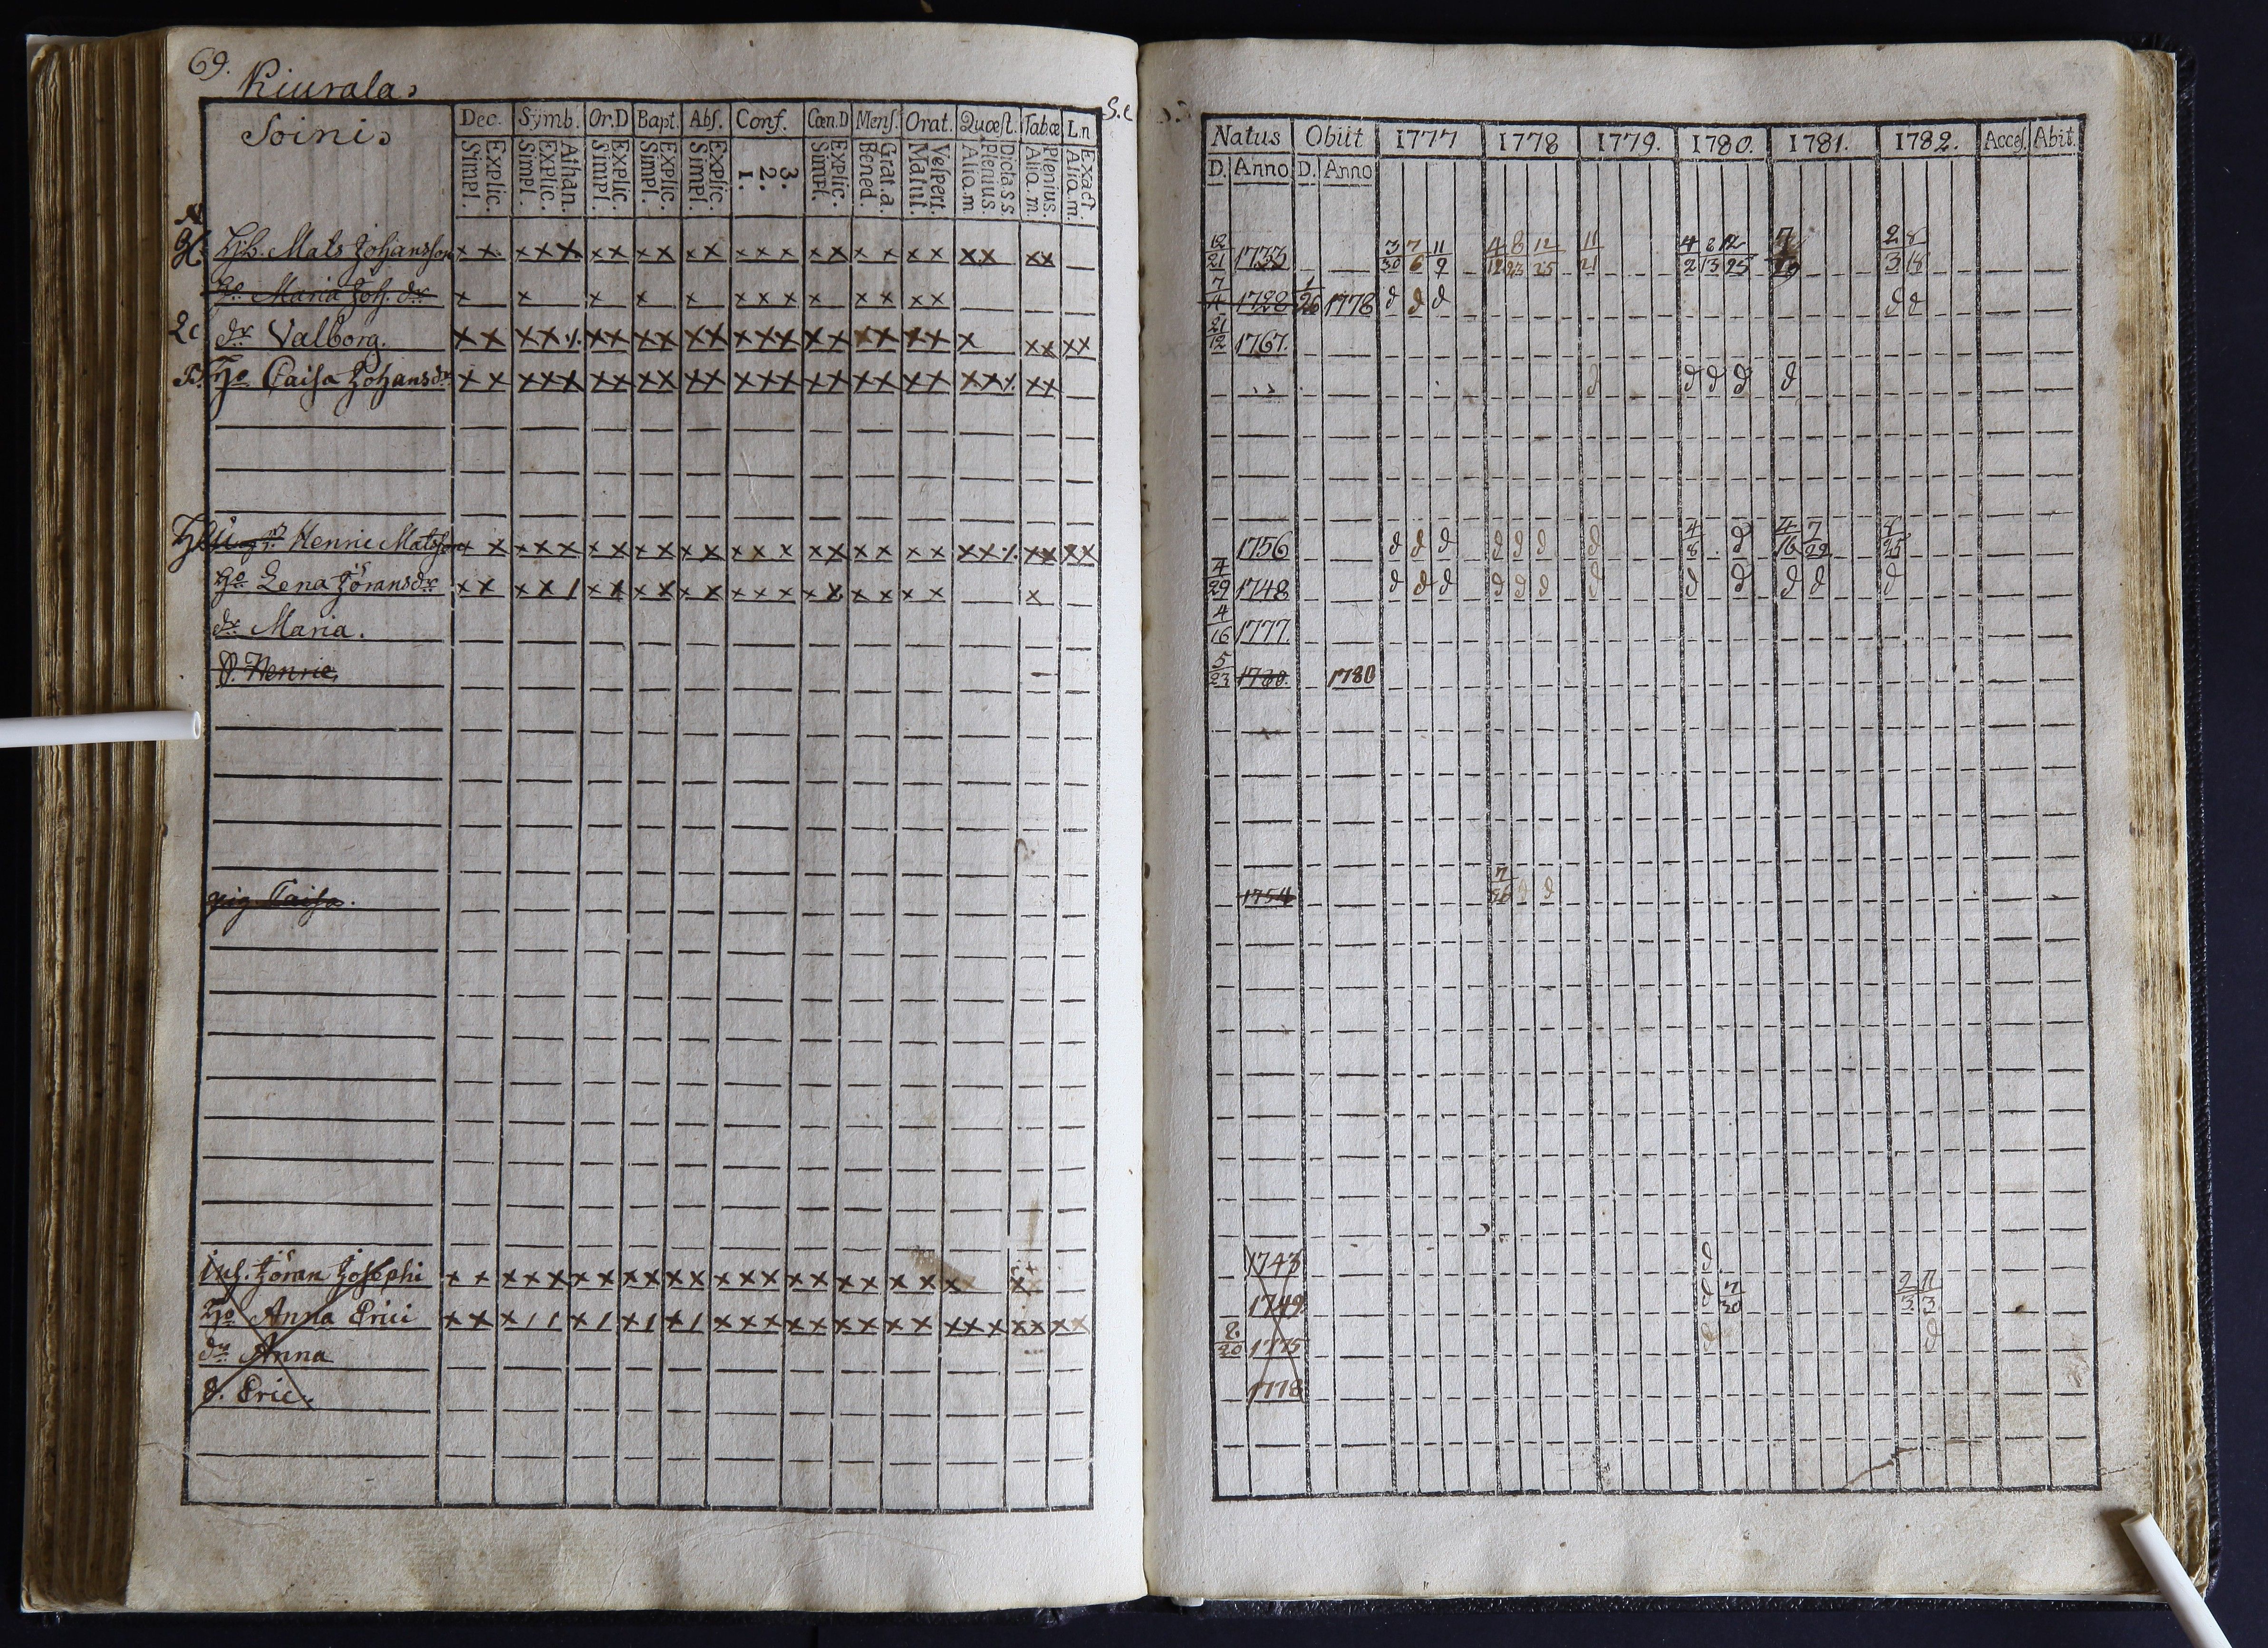 69.
Kiurala.
Soini.
S.c
Dec. Symb. Or.D Bapt. Abs. Conf. Cœn.D Mens. Orat. Quæst. Tab.œ L.n
Explic. Simpl. Athan. Explic. Simpl. Explic. Simpl. Explic. Simpl. Explic. Simpl. 3. 2. 1. Explic. Simpl. Grat.a. Bened. Vespert. Matut. Dicta.s.s. Plenius. Aliq.m Plenius. Aliq.m. Exact. Aliq.m.
Mats Johansson x x x x x x x x x x x x x x x x x x x x x x x x
Ho Maria Joh. dr x x x x x x x x x x x x x
dr Valborg. x x x x ./. x x x x x x x x x x x x x x x x x x x x x
Ho Caisa Johansdr x x x x x x x x x x x x x x x x x x x x x x ./. x x
Henric Matsson x x x x x x x x x x x x x x x x x x x x x x ./. x x x x
Ho Lena Jöransdr x x x x / x x x x x x x x x x x x x x x x
dr Maria.
S. Henric,
pig Caisa.
Inh. Jöran Josephi x x x x x x x x x x x x x x x x x x x x x x
Ho Anna Erici x x x / / x / x / x / x x x x x x x x x x x x x x x x
dr Anna
S. Eric.
Natus Obiit 1777 1778 1779. 1780. 1781. 1782. Acces. Abit.
D. Anno D. Anno
12/21 1733 3/30 7/6 11/9 4/12 8/23 12/25 11/21 4/2 8/13 12/25 2/3 8/18
7/4 1728 1/26 1778 d d d d d
21/12 1767.
d d d d d
1756 d d d d d d d 4/8 d 4/16 7/22 8/25
4/29 1748 d d d d d d d d d d d d
4/16 1777.
5/23 1780. 1780
1754 7/26 d d
1743 d
1749 d 7/30 2/3 11/3
8/20 1775 d d
1778